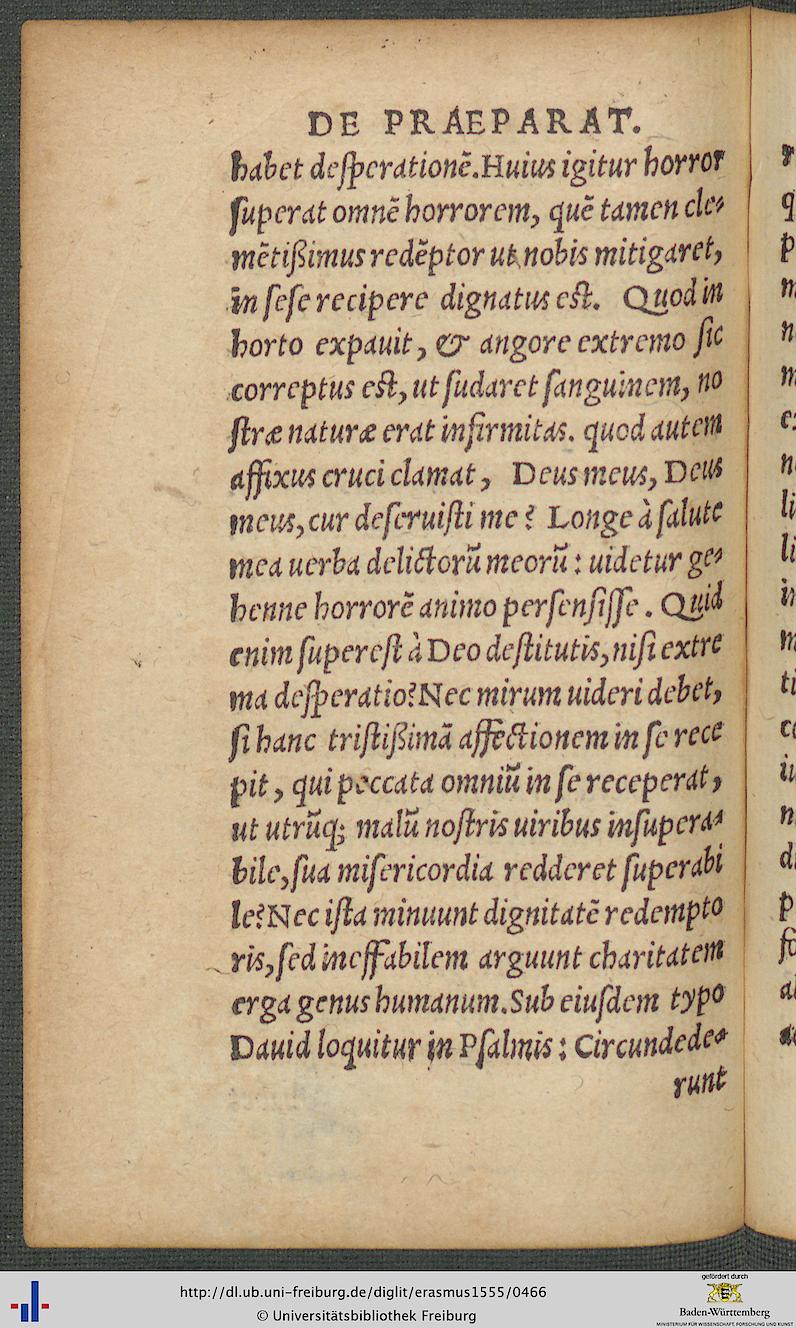 DE PRAEPARAT.
habet deſperationẽ. Huius igitur horror
ſuperat omnẽ horrorem, quẽ tamen cle⸗
mẽtißimus redẽptor ut nobis mitigaret,
in ſeſe recipere dignatus eſt. Quod in
horto expauit, & angore extremo ſic
correptus eſt, ut ſudaret ſanguinem, no
ſtræ naturæ erat infirmitas. quod autem
affixus cruci clamat, Deus meus, Deus
meus, cur deſeruiſti me? Longe à ſalute
mea uerba delictorũ meorũ: uidetur ge⸗
henne horrorẽ animo perſenſiſſe. Quid
enim ſupereſt à Deo deſtitutis, niſi extre
ma deſperatio? Nec mirum uideri debet,
ſi hanc triſtißimã affectionem in ſe rece
pit, qui peccata omniũ in ſe receperat,
ut utrũq; malũ noſtris uiribus inſupera⸗
bile, ſua miſericordia redderet ſuperabi
le? Nec iſta minuunt dignitatẽ redempto
ris, ſed ineffabilem arguunt charitatem
erga genus humanum. Sub eiuſdem typo
Dauid loquitur in Pſalmis: Circundede⸗
runt
http://dl.ub.uni-freiburg.de/diglit/erasmus1555/0466
© Universitätsbibliothek Freiburg
gefördert durch
Baden-Württemberg
MINISTERIUM FÜR WISSENSCHAFT, FORSCHUNG UND KUNST